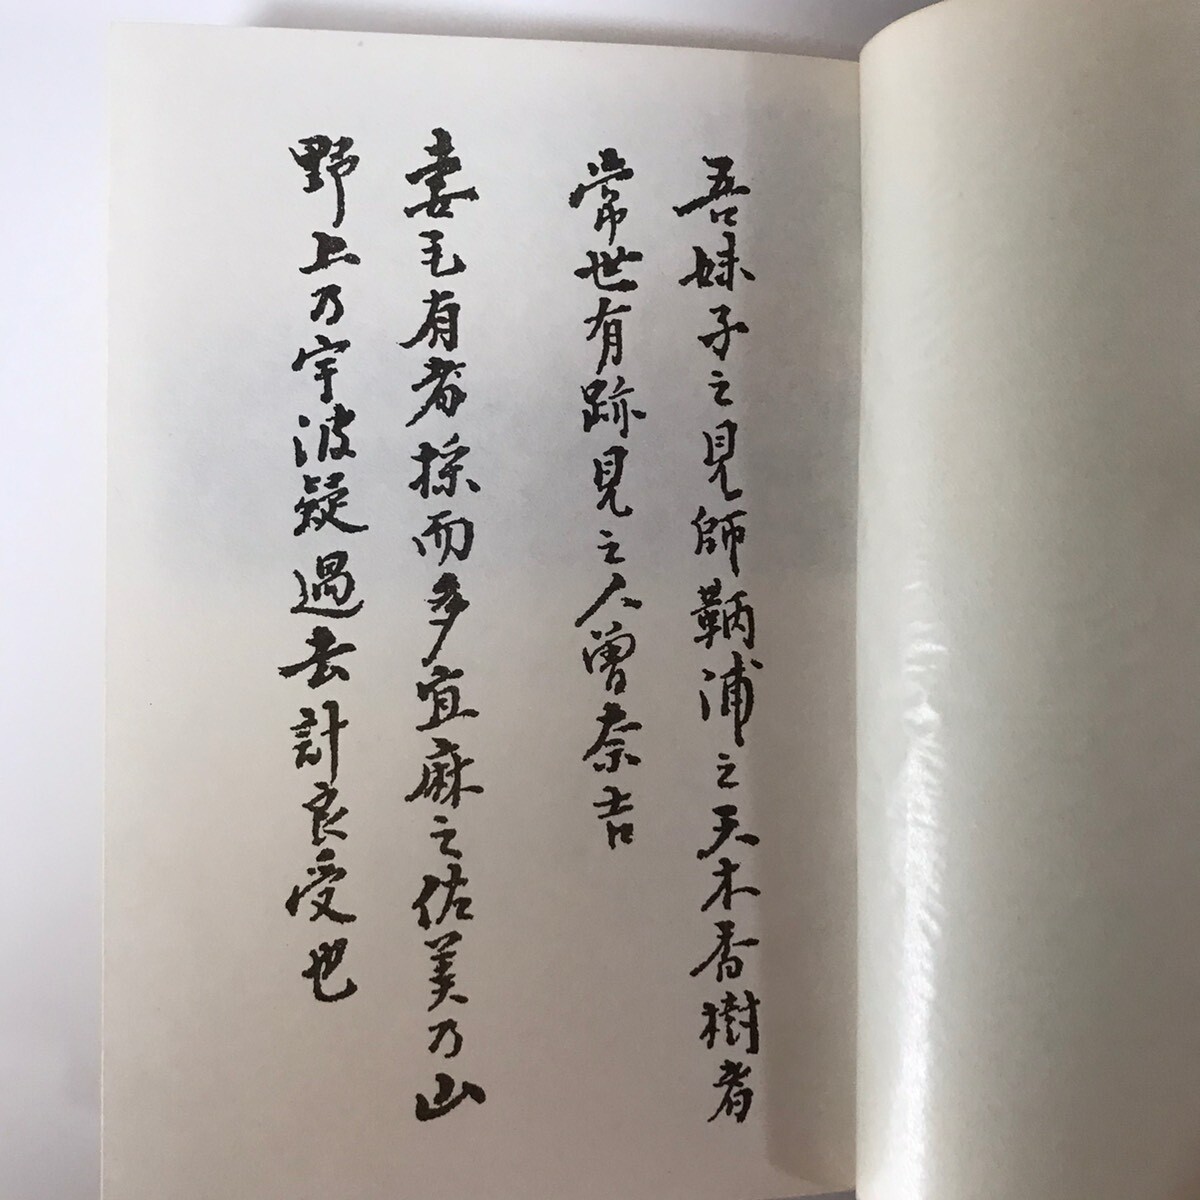 吾妹子之見師鞆浦之天木香樹者
常世有跡見之人曽奈吉
妻毛有者採而多宜麻之佐美乃山
野上乃宇波疑過去計良受也